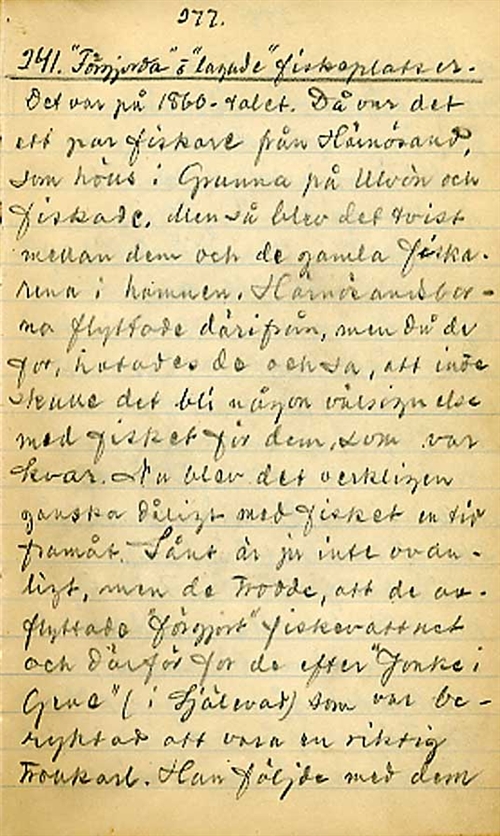 277.
241. "Förgjorda" o "lagade" fiskeplatser.
Det var på 1860-talet. Då var det
ett par fiskare från Härnösand,
som höus i Grunna på Ulvön och
fiskade. Men så blev det tvist
mellan dem och de gamla fiska-
rena i hamnen. Härnösandsbor-
na flyttade därifrån, men då de
for, hotades de och sa, att inte
skulle det bli någon välsignelse
med fisket för dem, som var
kvar. Nu blev det verkligen
ganska dåligt med fisket en tid
framåt. Sånt är ju inte ovan-
ligt, men de trodde, att de av-
flyttade "förgjort" fiskevattnet
och därför for de efter "Jonke i
Gene" (i Själevad) som var be-
ryktad att vara en riktig
trollkarl. Han följde med dem